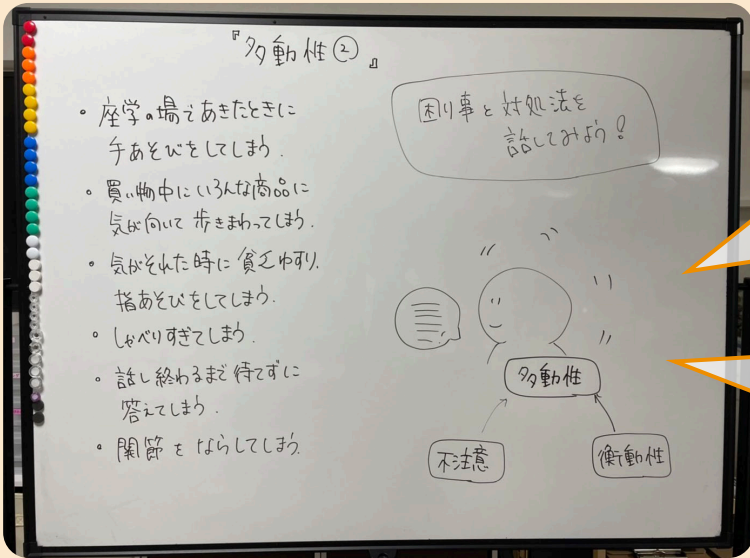 『多動性②』
・座学の場であきたときに
手あそびをしてしまう.
・買い物中にいろんな商品に
気が向いて歩きまわってしまう.
・気がそれた時に貧乏ゆすり.
指あそびをしてしまう.
・しゃべりすぎてしまう.
・話し終わるまで待てずに
答えてしまう.
・関節をならしてしまう.
困り事と対処法を
話してみよう!
多動性
不注意
衝動性